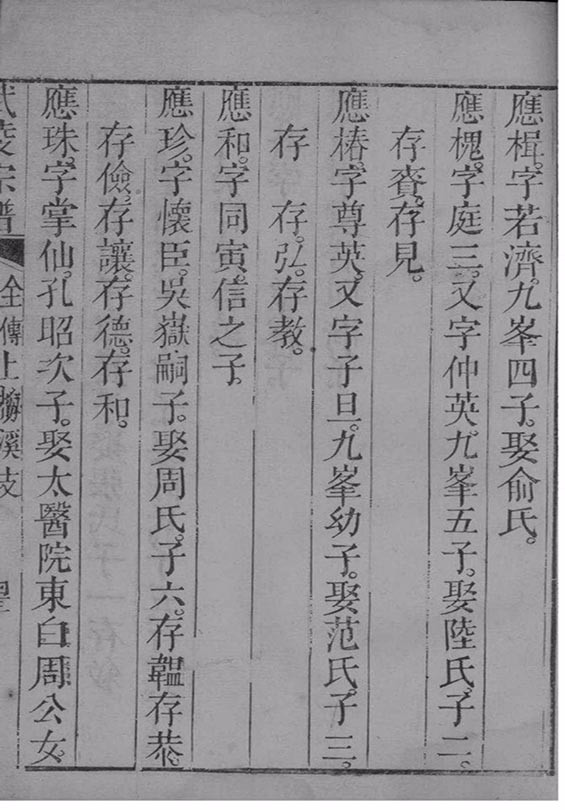 應楫。字若濟。九峯四子。娶俞氏。
應槐。字庭三。又字仲英。九峯五子。娶陸氏。子二。
存賚。存見。
應椿。字尊英。又字子旦。九峯幼子。娶范氏。子三。
存 存弘。存教。
應和。字同寅。信之子。
應珍。字懷臣。吳嶽嗣子。娶周氏。子六。存韞。存恭。
存儉。存讓。存德。存和。
應珠。字掌仙。孔昭次子。娶太醫院東白周公女。
宗譜 全傳上 溪支